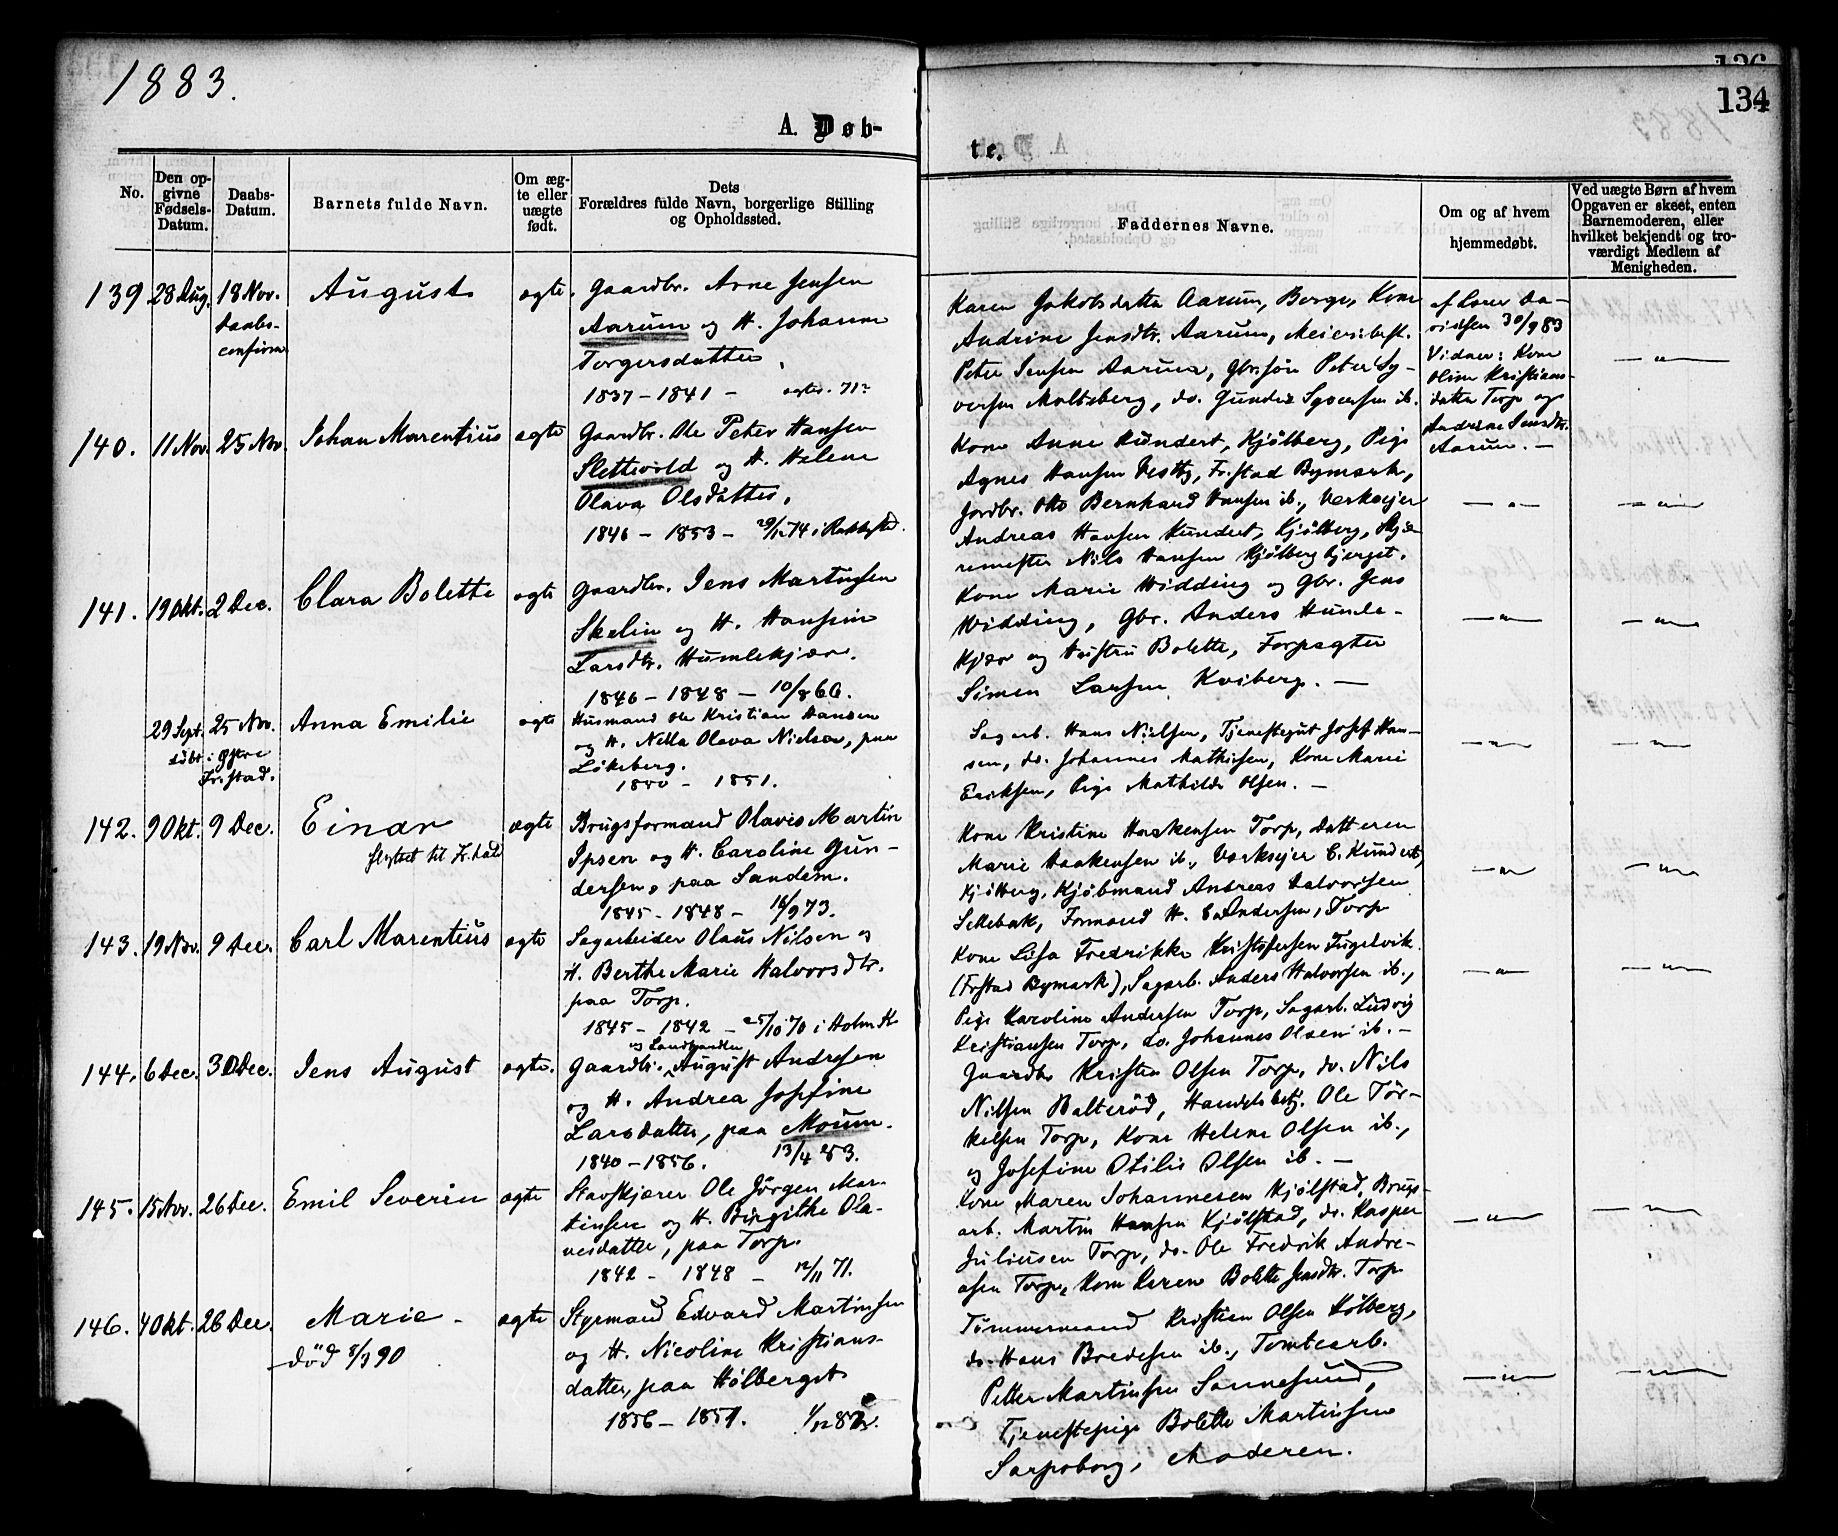 1883.
134
A. Døb-
te.
No.
Den op-
givne
Fødsels-
Datum.
Daabs-
Datum.
Barnets fulde Navn.
Om æg-
te eller
uægte
født.
Dets
Forældres fulde Navn, borgerlige Stilling
og Opholdssted.
Faddernes Navne.
Om og af hvem
hjemmedøbt.
Ved uægte Børn af hvem
Opgaven er skeet, enten
Barnemoderen, eller
hvilket bekjendt og tro-
værdigt Medlem af
Menigheden.
139 28 Aug. 18 Nov. August ægte. Gaardbr. Arne Jensen
Daabs-
confirm
Aarum og H. Johanne
Torgersdatter.
1837 - 1841 -
Karen Jakobsdatter Aarum, Borge, Kone
Andrine Jensdtr. Aarum, Meieribest.
Peter Jensen Aarum, Gbr.søn Peter Sy-
versen Molteberg, do. Gunder Syversen ib.
af Lærer Da-
vidsen 30/9 83
Vidner: Kone
Oline Kristians-
datter Torp og
Andrine Jensdtr.
Aarum. -
140. 11 Nov. 25 Nov. Johan Marentius ægte Gaardbr. Ole Peter Hansen
Slettevold og H. Helene
Olava Olsdatter.
1846 - 1853 - 29/12 74 i Rakkestad.
Kone Anne Kundert, Kjølberg, Pige
Agnes Hansen, Fr.stad Bymark,
Jordbr. Otto Bernhard Hansen ib., Værkseier
Andreas Hansen Kundert, Kjølberg, Skjæ-
remester Nils Hansen Kjølbergbjerget.
141. 19 Okt. 2 Dec. Clara Bolette ægte Gaardbr. Jens Martinsen
Skelin og H. Hansine
Larsdtr. Humlekjær.
1846 - 1848 - 10/8 60.
Kone Marie Hidding og Gbr. Jens
Hidding, Gbr. Anders Humle-
kjær og Hustru Bolette, Forpagter
Simen Larsen Kviberg. -
29 Sept. 25 Nov. Anna Emilie ægte Husmand Ole Kristian Hansen
døbt i Østre
Fr.stad.
og H. Nella Olava Nielsen, paa
Lökeberg.
1850 - 1851.
Sagarb. Hans Nielsen, Tjenestegut Josef Han-
sen, do. Johannes Mathisen, Kone Marie
Eriksen, Pige Mathilde Olsen. -
142. 9 Okt. 9 Dec. Einar ægte Brugsformand Olavis Martin
flyttet til Fr.hald
Ipsen og H. Caroline Gun-
dersen, paa Sandem.
1845 - 1848 - 16/9 73.
Kone Kristine Haakensen Torp, Datteren
Marie Haakensen ib., Værkseier C. Kundert,
Kjølberg, Kjøbmand Andreas Halvorsen
Sellebak, Formand H. Andersen, Torp
143. 19 Nov. 9 Dec. Carl Marentius ægte Sagarbeider Olaus Nilsen og
H. Berthe Marie Halvorsdtr.
paa Torp.
1845 - 1842 - 25/10 70 i Holm
Kone Lisa Fredrikke Kristofersen Fugelvik
(Fr.stad Bymark), Sagarb. Anders Halvorsen ib.,
Pige Karoline Andersen Torp, Sagarb. Ludvig
Kristiansen Torp, do. Johannes Olsen ib. -
144. 6 Dec. 30 Dec. Jens August ægte.
og Landhandler
Gaardbr. August Andresen
og H. Andrea Josefine
Larsdatter, paa Moum.
1840 - 1856. 13/4 83.
Gaardbr Kristen Olsen Torp, do. Nils
Nilsen Balterød, Handelsbetj. Ole Tor-
kelsen Torp, Kone Helene Olsen ib.,
og Josefine Otilie Olsen ib. -
145. 15 Nov. 26 Dec. Emil Severin ægte Stavskjærer Ole Jørgen Mar-
tinsen og H. Birgithe Ola-
vesdatter, paa Torp.
1842 - 1848 - 12/11 71.
Kone Maren Johannesen Kjølstad, Brugs-
arb. Martin Hansen Kjølstad, do. Kasper
Juliusen Torp, do. Ole Fredrik Andre-
asen Torp, Kone Karen Bolette Jensdtr. Torp
146. 4 Okt. 26 Dec. Marie - ægte Styrmand Edvard Martinsen
død 8/3 90
og H. Nicoline Kristians-
datter, paa Hølberget
1856 - 1857. 1/12 82.
Tømmermand Kristian Olsen Hølberg,
do. Hans Bredesen ib., Tomtearb.
Petter Martinsen Sannesund,
Tjenestepige Bolette Martinsen
Sarpsborg, Moderen.